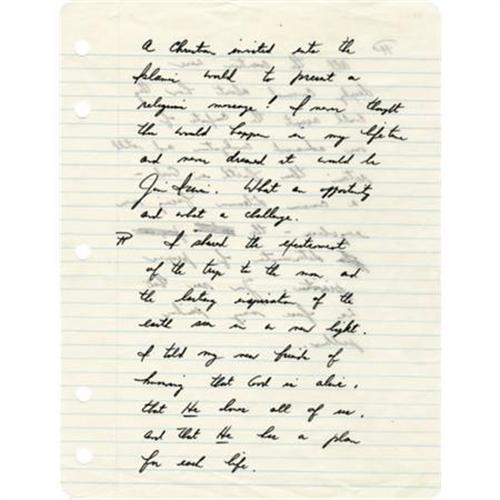 A Christian invited into the
Islamic world to present a
religious message! I never thought
this would happen in my lifetime
and never dreamed it would be
Jim Irwin. What an opportunity
and what a challenge.
I shared the excitement
of the trip to the moon and
the lasting inspiration of the
earth seen in a new light.
I told my new friends of
knowing that God is alive,
that He loves all of us,
and that He has a plan
for each life.